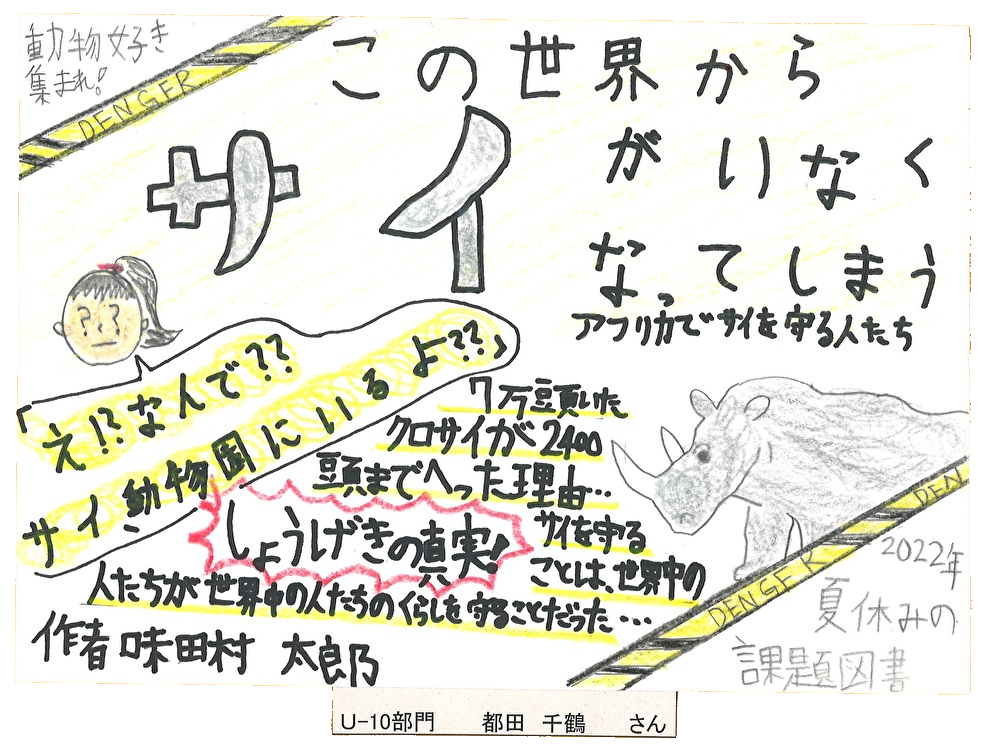 動物好き
集まれ!
DENGER
この世界から
サイ
がいなく
なってしまう
アフリカでサイを守る人たち
「え!?なんで??
サイ動物園にいるよ??」
7万頭いた
クロサイが2400
頭までへった理由…
しょうげきの真実!
サイを守る
ことは、世界中の
人たちが世界中の人たちのくらしを守ることだった…
作者 味田村 太郎
DEN
DENGER
2022年
夏休みの
課題図書
U-10部門 都田 千鶴 さん